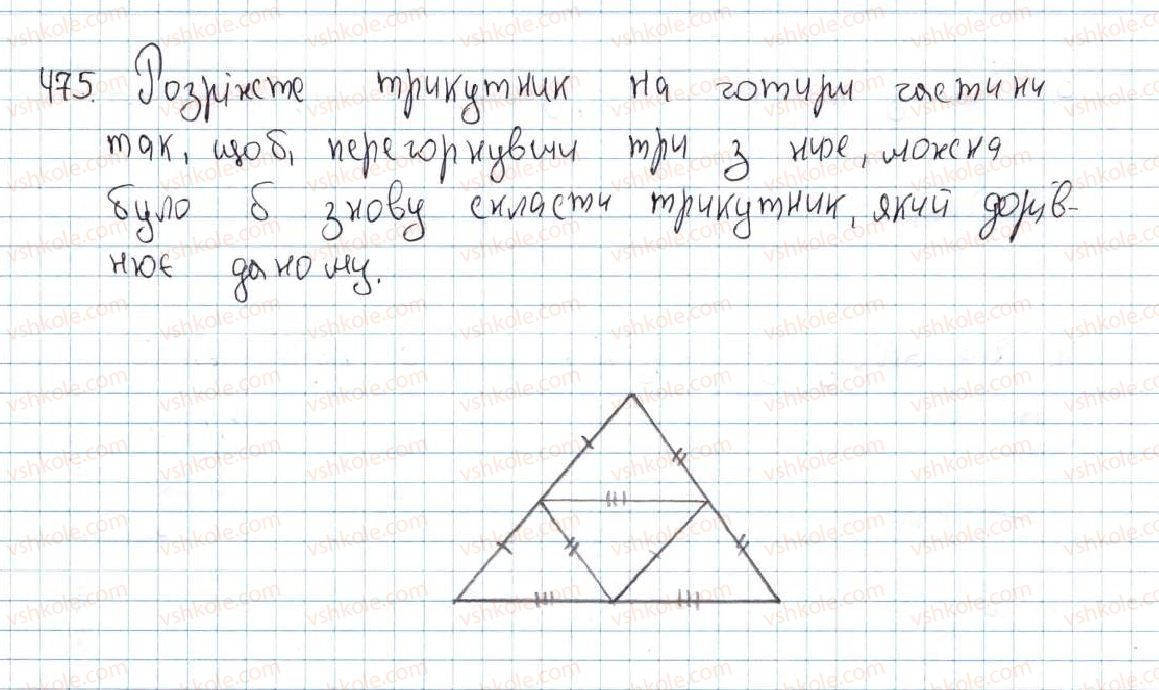 475. Розріжте трикутник на чотири частини
так, щоб, перегорнувши три з них, можна
було б знову скласти трикутник, який дорів-
нює даному.
vshkole.com